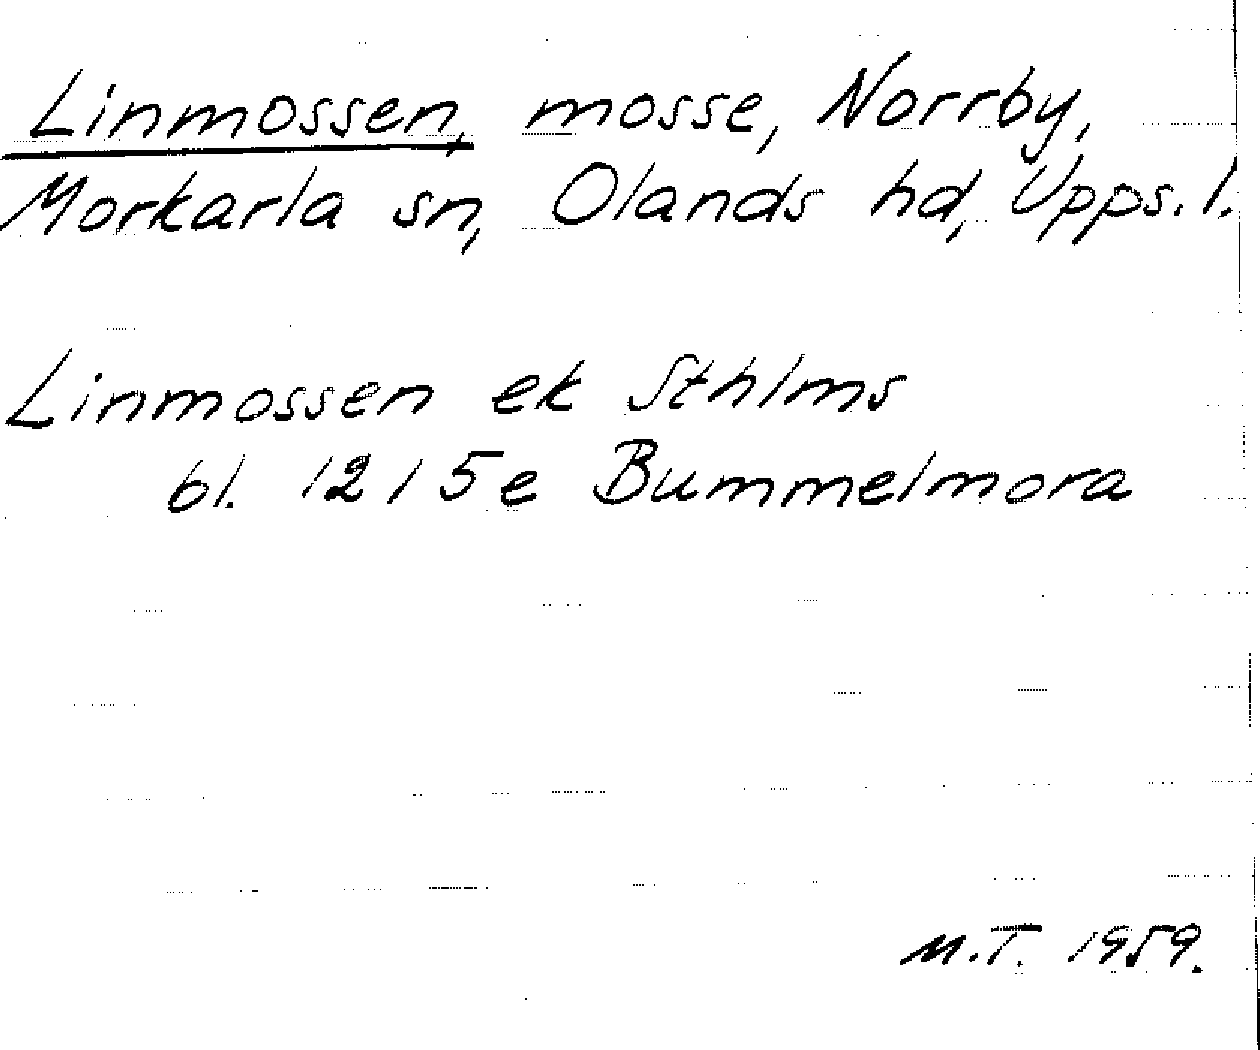 Linmossen, mosse, Norrby,
Morkarla sn, Olands hd, Upps. l.
Linmossen ek Sthlms
bl. 12 I 5e Bummelmora
M.T. 1959.